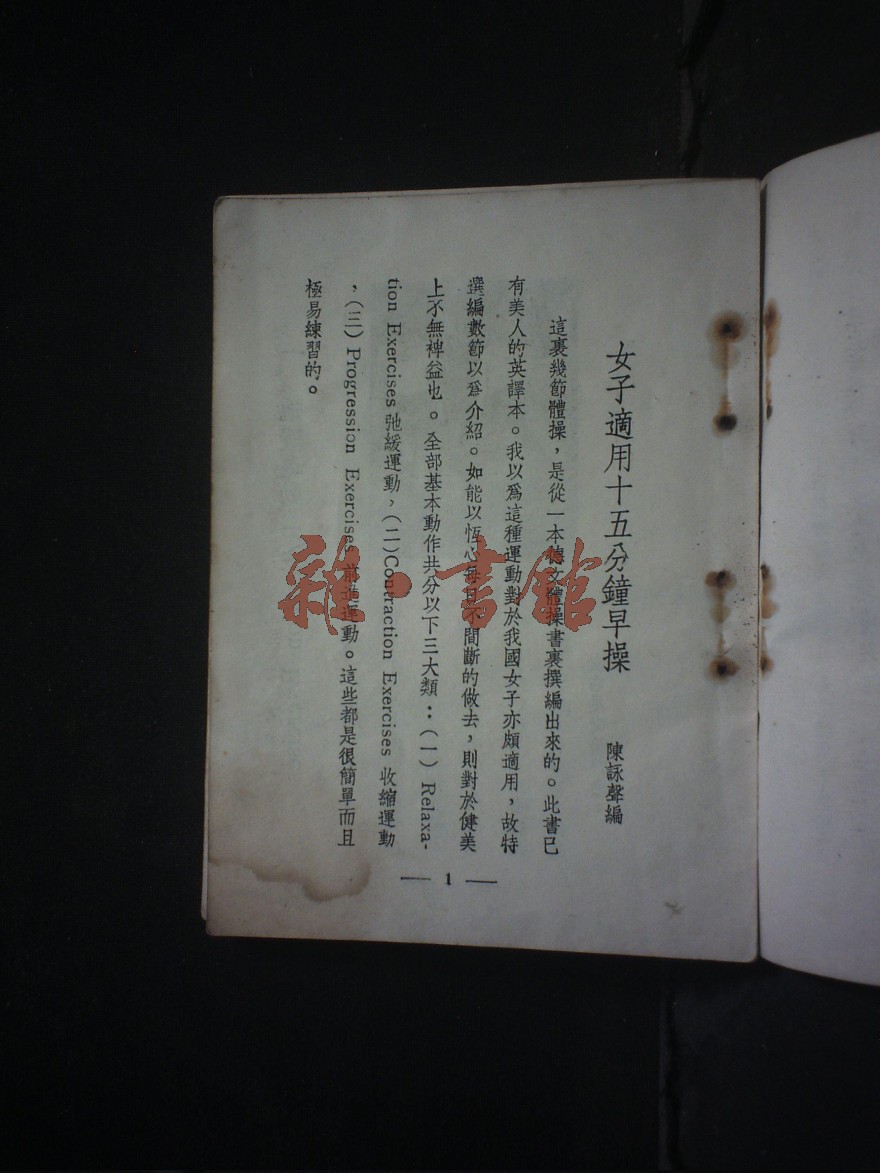 女子適用十五分鐘早操
陳詠聲編
這裏幾節體操，是從一本德文體操書裏撰編出來的。此書已
有美人的英譯本。我以爲這種運動對於我國女子亦頗適用，故特
選編數節以爲介紹。如能以恆心每日不間斷的做去，則對於健美
上不無裨益也。全部基本動作共分以下三大類：（一）Relaxa-
tion Exercises 弛緩運動，（二）Contraction Exercises 收縮運動
，（三）Progression Exercises 前進運動。這些都是很簡單而且
極易練習的。
— 1 —
雜·書館